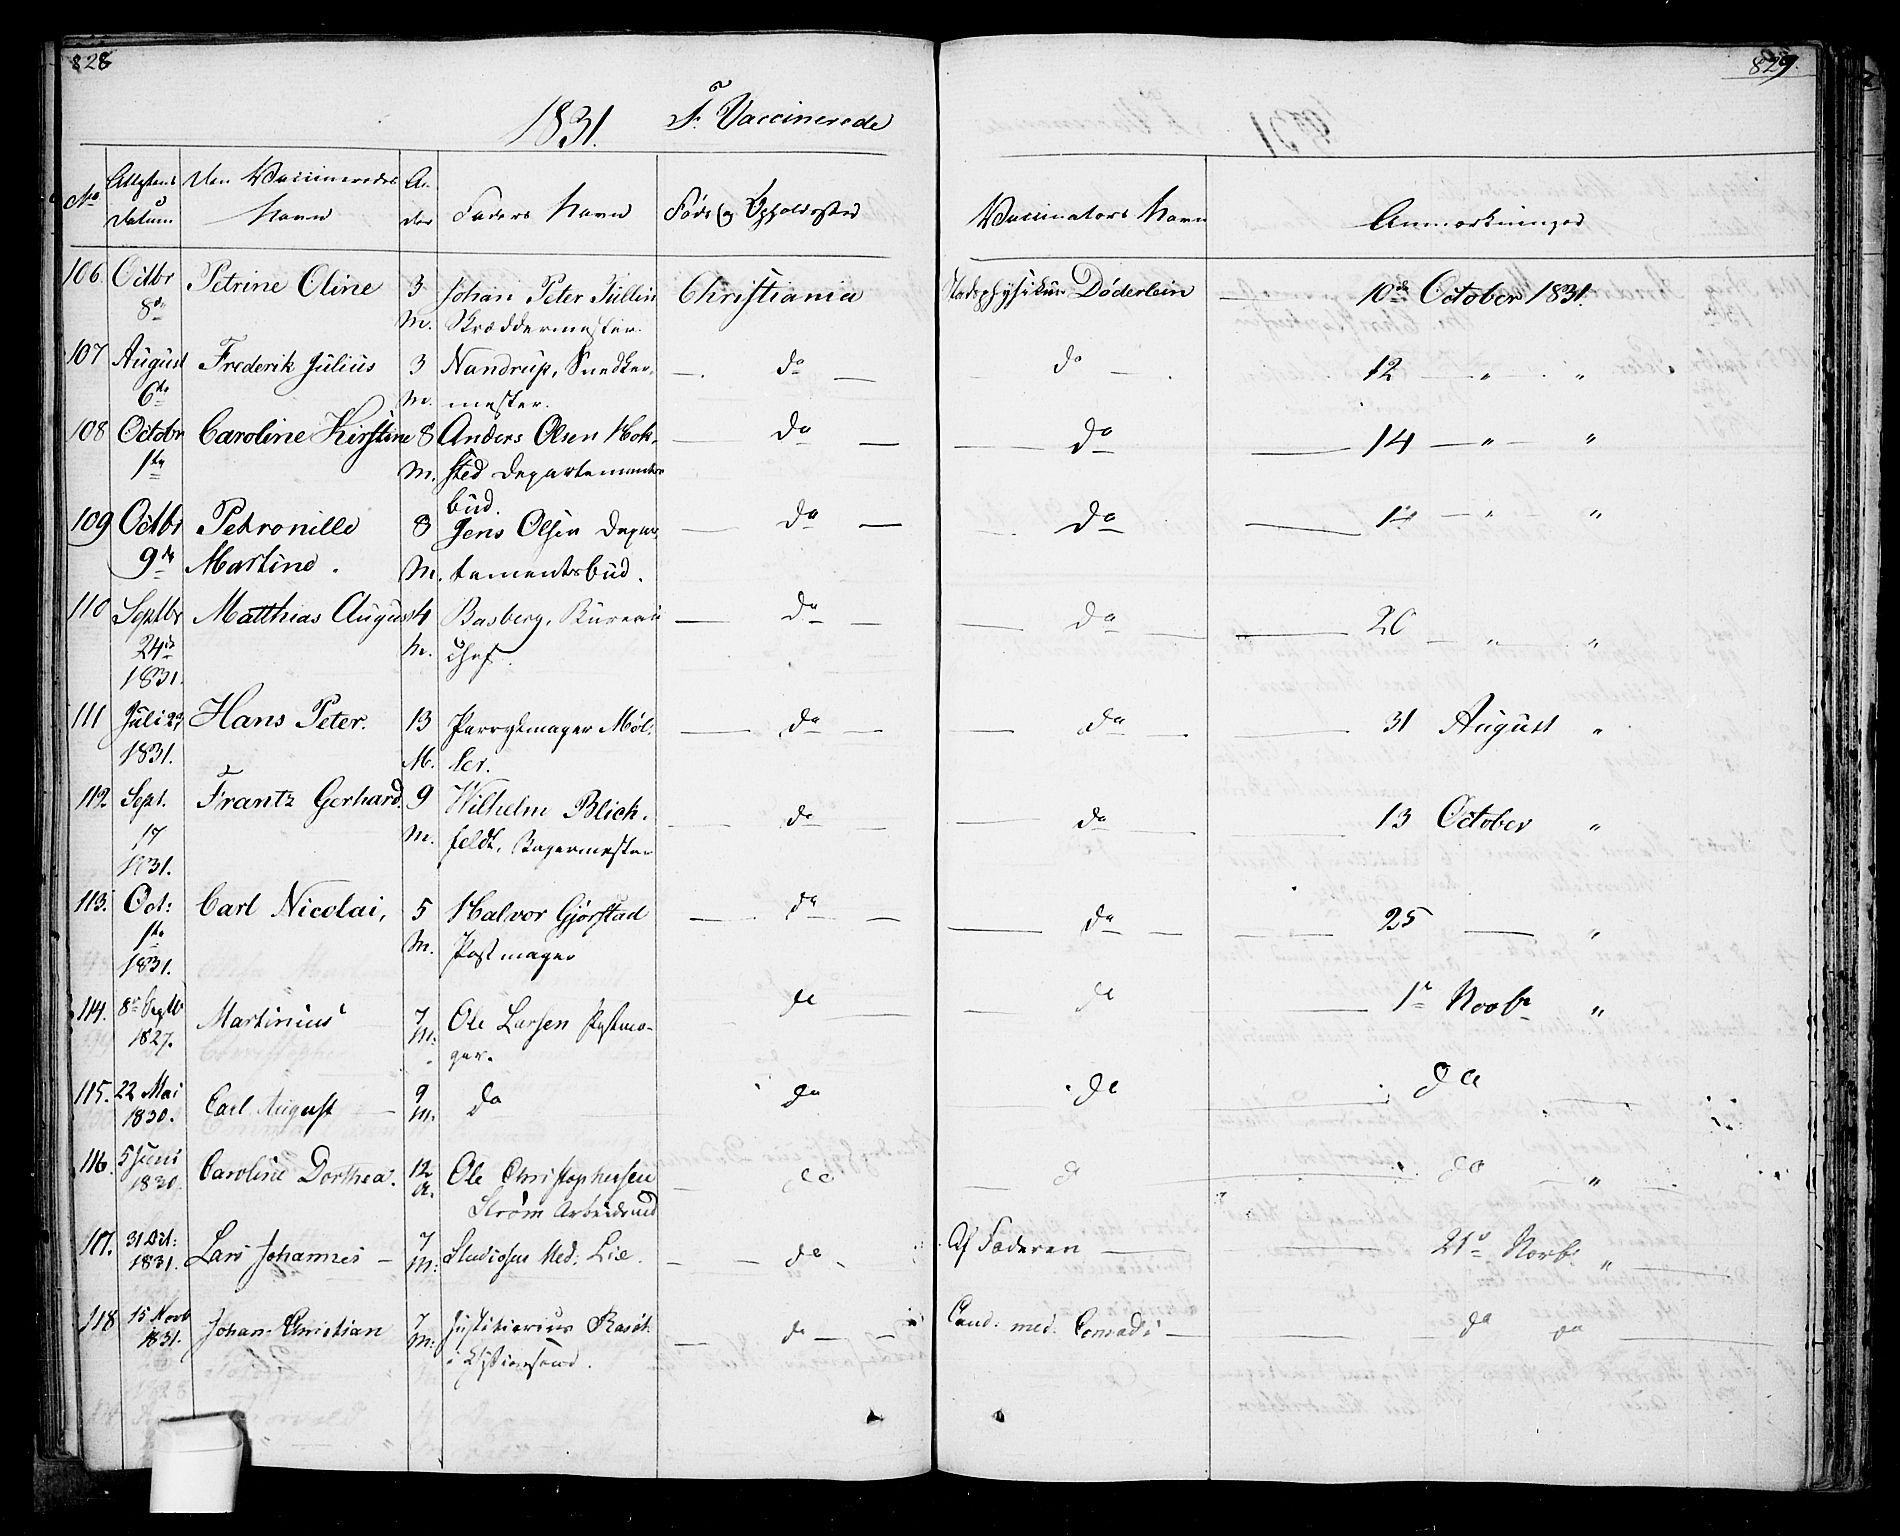 828
829.
1831. F. Vaccinerede
No Attestens Datum Den Vaccineredes Navn Al- der Faders Navn Føde og Opholdssted Vaccinators Navn Anmærkninger
106. Octbr Petrine Oline 3 Johan Peter Tullin Christiania Stadsphysikus Døderlein — 10de October 1831.
8de M. Skræddermester.
107 August Frederik Julius 3 Nandrup, Snedker- — do — do — 12 — " — "
6te M. mester.
108 Octobr Caroline Kirstine 8 Anders Olsen Hok- — do — — do — 14 — " — "
1ste M. sted Departements
bud.
109 Octbr Petronille 8 Jens Olsen Depar — do — do — 14 — " — "
9de Martine. M. tementsbud.
110 Septbr Matthias August 4 Basberg, Bureau — do — — do — — 20 — " "
24de M. Chef.
1831.
111 Juli 29 Hans Peter. 13 Parrykmager Møl- — do — — do — — 31 August "
1831. M. ler.
112. Sept. Frantz Gerhard. 9 Wilhelm Blich- — do — — do — — 13 October "
17 M. feldt, Bagermester
1831.
113. Oct: Carl Nicolai, 5 Halvor Gjørstad — do — — do — — 25 — "
1ste M. Postmager
1831.
114. 8de Septb Martinius 7 Ole Larsen Postma- do — do — 1ste Novbr "
1827. M. ger.
115. 22 Mai Carl August — 9 do do — do — do
1830. M.
116. 5 Juni Caroline Dorthea. 12 Ole Christophersen — do — do — do — "
1830. A. Strøm Arbeidsmd
117. 31 Oct: Lars Johannes — 7 Studiosus Med: Lie. — do Af Faderen — — 21de Novbr "
1831. M:
118 15 Novb Johan Christian 7 Justitiarius — do — Cand. med. Conradi — — do do
1831. M: i Chstiansand.